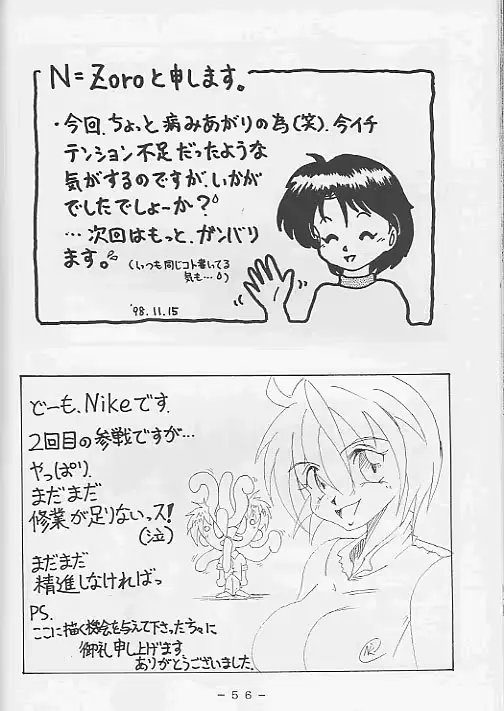 N=Zoroと申します。
・今回、ちょっと病みあがりの為(笑)、今イチ
テンション不足だったような
気がするのですが、いかが
でしたでしょーか?
…次回はもっと、ガンバリ
ます。
(いつも同じコト書いてる
気も…)
'98.11.15
どーも、Nikeです.
2回目の参戦ですが…
やっぱり
まだまだ
修業が足りないっス!
(泣)
まだまだ
精進しなければっ
PS.
ここに描く機会を与えて下さった方々に
御礼申し上げます
ありがとうございました.
-56-